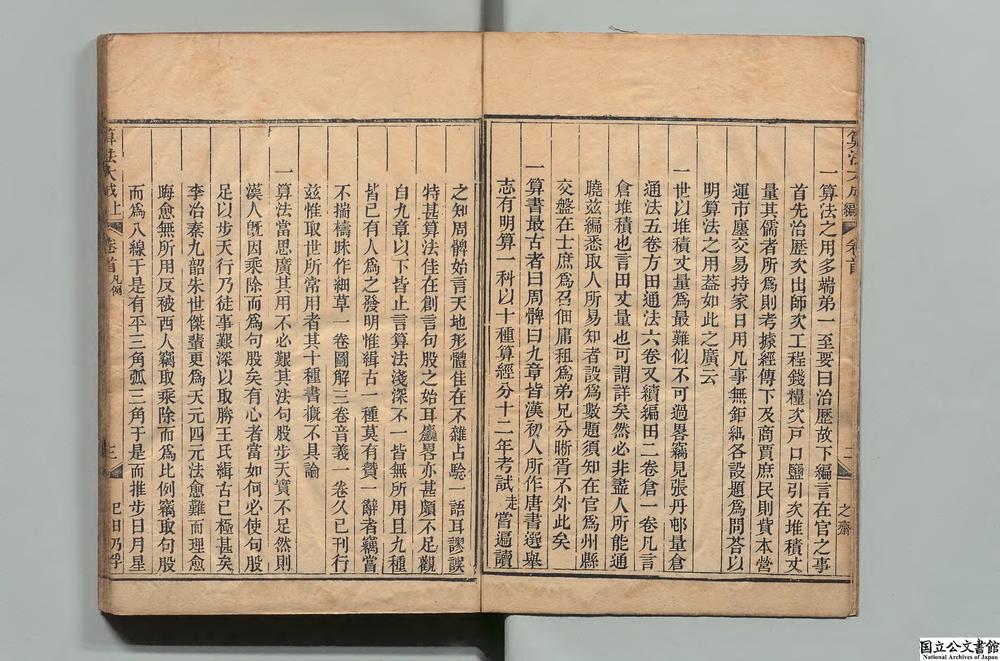 一算法之用多端弟一至要曰治歷故下編言在官之事
首先治歷次出師次工程錢糧次戸口鹽引次堆積丈
量其儒者所爲則考據經傳下及商賈庶民則貨本營
運市廛交易持家日用凡事無鉅細各設題爲問荅以
明算法之用葢如此之廣云
一世以堆積丈量爲最難似不可過畧竊見張丹邨量倉
通法五卷方田通法六卷又續編田二卷倉一卷凡言
倉堆積也言田丈量也可謂詳矣然必非盡人所能通
曉兹編悉取人所易知者設爲數題須知在官爲州縣
交盤在士庶爲召佃庸租爲弟兄分晰胥不外此矣
一算書最古者曰周髀曰九章皆漢初人所作唐書選舉
志有明算一科以十種算經分十二年考試走嘗遍讀
之知周髀始言天地形體往往不雜占驗一語耳謬誤
特甚算法佳在創言句股之始耳麤畧亦甚頗不足觀
自九章以下皆止言算法淺深不一皆無所用且九種
皆已有人爲之發明惟緝古一種莫有賛一辭者竊嘗
不揣檮昧作細草一卷圖解三卷音義一卷久已刊行
兹惟取世所常用者其十種書槪不具論
一算法當思廣其用不必艱其法句股步天實不足然則
漢人旣因乘除而爲句股矣有心者當如何必使句股
足以步天行乃徒事艱深以取勝王氏緝古已極甚矣
李冶秦九韶朱世傑輩更爲天元四元法愈難而理愈
晦愈無所用反被西人竊取乘除而爲比例竊取句股
而爲八線于是有平三角弧三角于是而推步日月星
算法大成上 卷首 凡例
三
算法大成 編 卷首
二
之齋
國立公文書館
National Archives of Japan